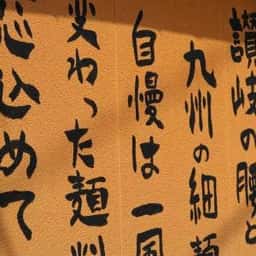 讃岐の腰と
九州の細麺
自慢は一国
変わった麺料
心込めて